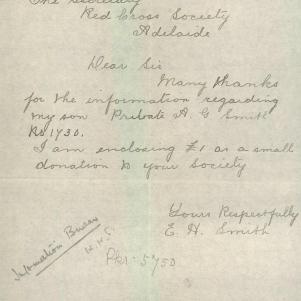 The Secretary
Red Cross Society
Adelaide
Dear Sir
Many thanks
for the information regarding
my son Private A. G. Smith
No 1730.
I am enclosing £1 as a small
donation to your Society
Yours Respectfully
E. H. Smith
Information Bureau
Pkt. 5750